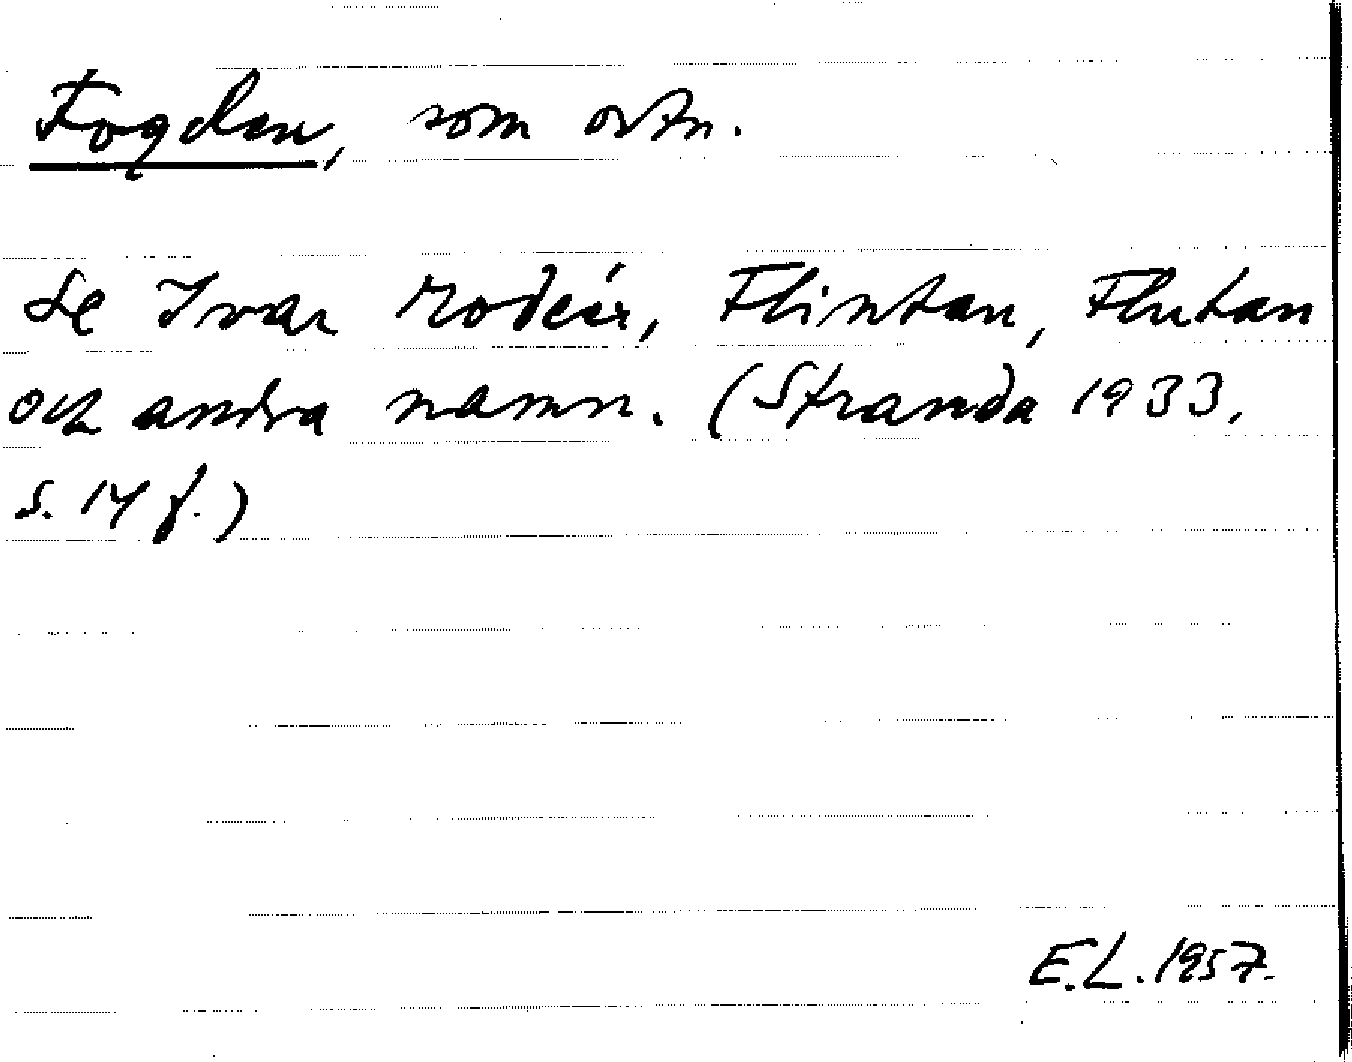 Fogden, som ortn.
Se Ivar Modéer, Flintan, Flutan
och andra namn. (Stranda 1933,
s. 14 f.)
E.L. 1957.